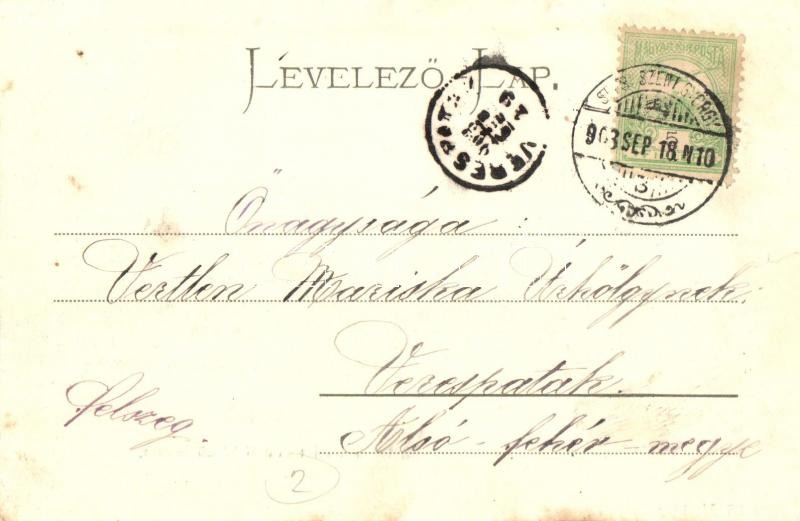 LEVELEZŐ LAP.
MAGYAR KIR. POSTA
5
SZENT GYÖRGY
903 SEP 18 N10
VERESPATAK
Őnagysága :
Vertlen Mariska Úrhölgynek.
Verespatak.
Felszeg.
Alsó-fehér-megye
2